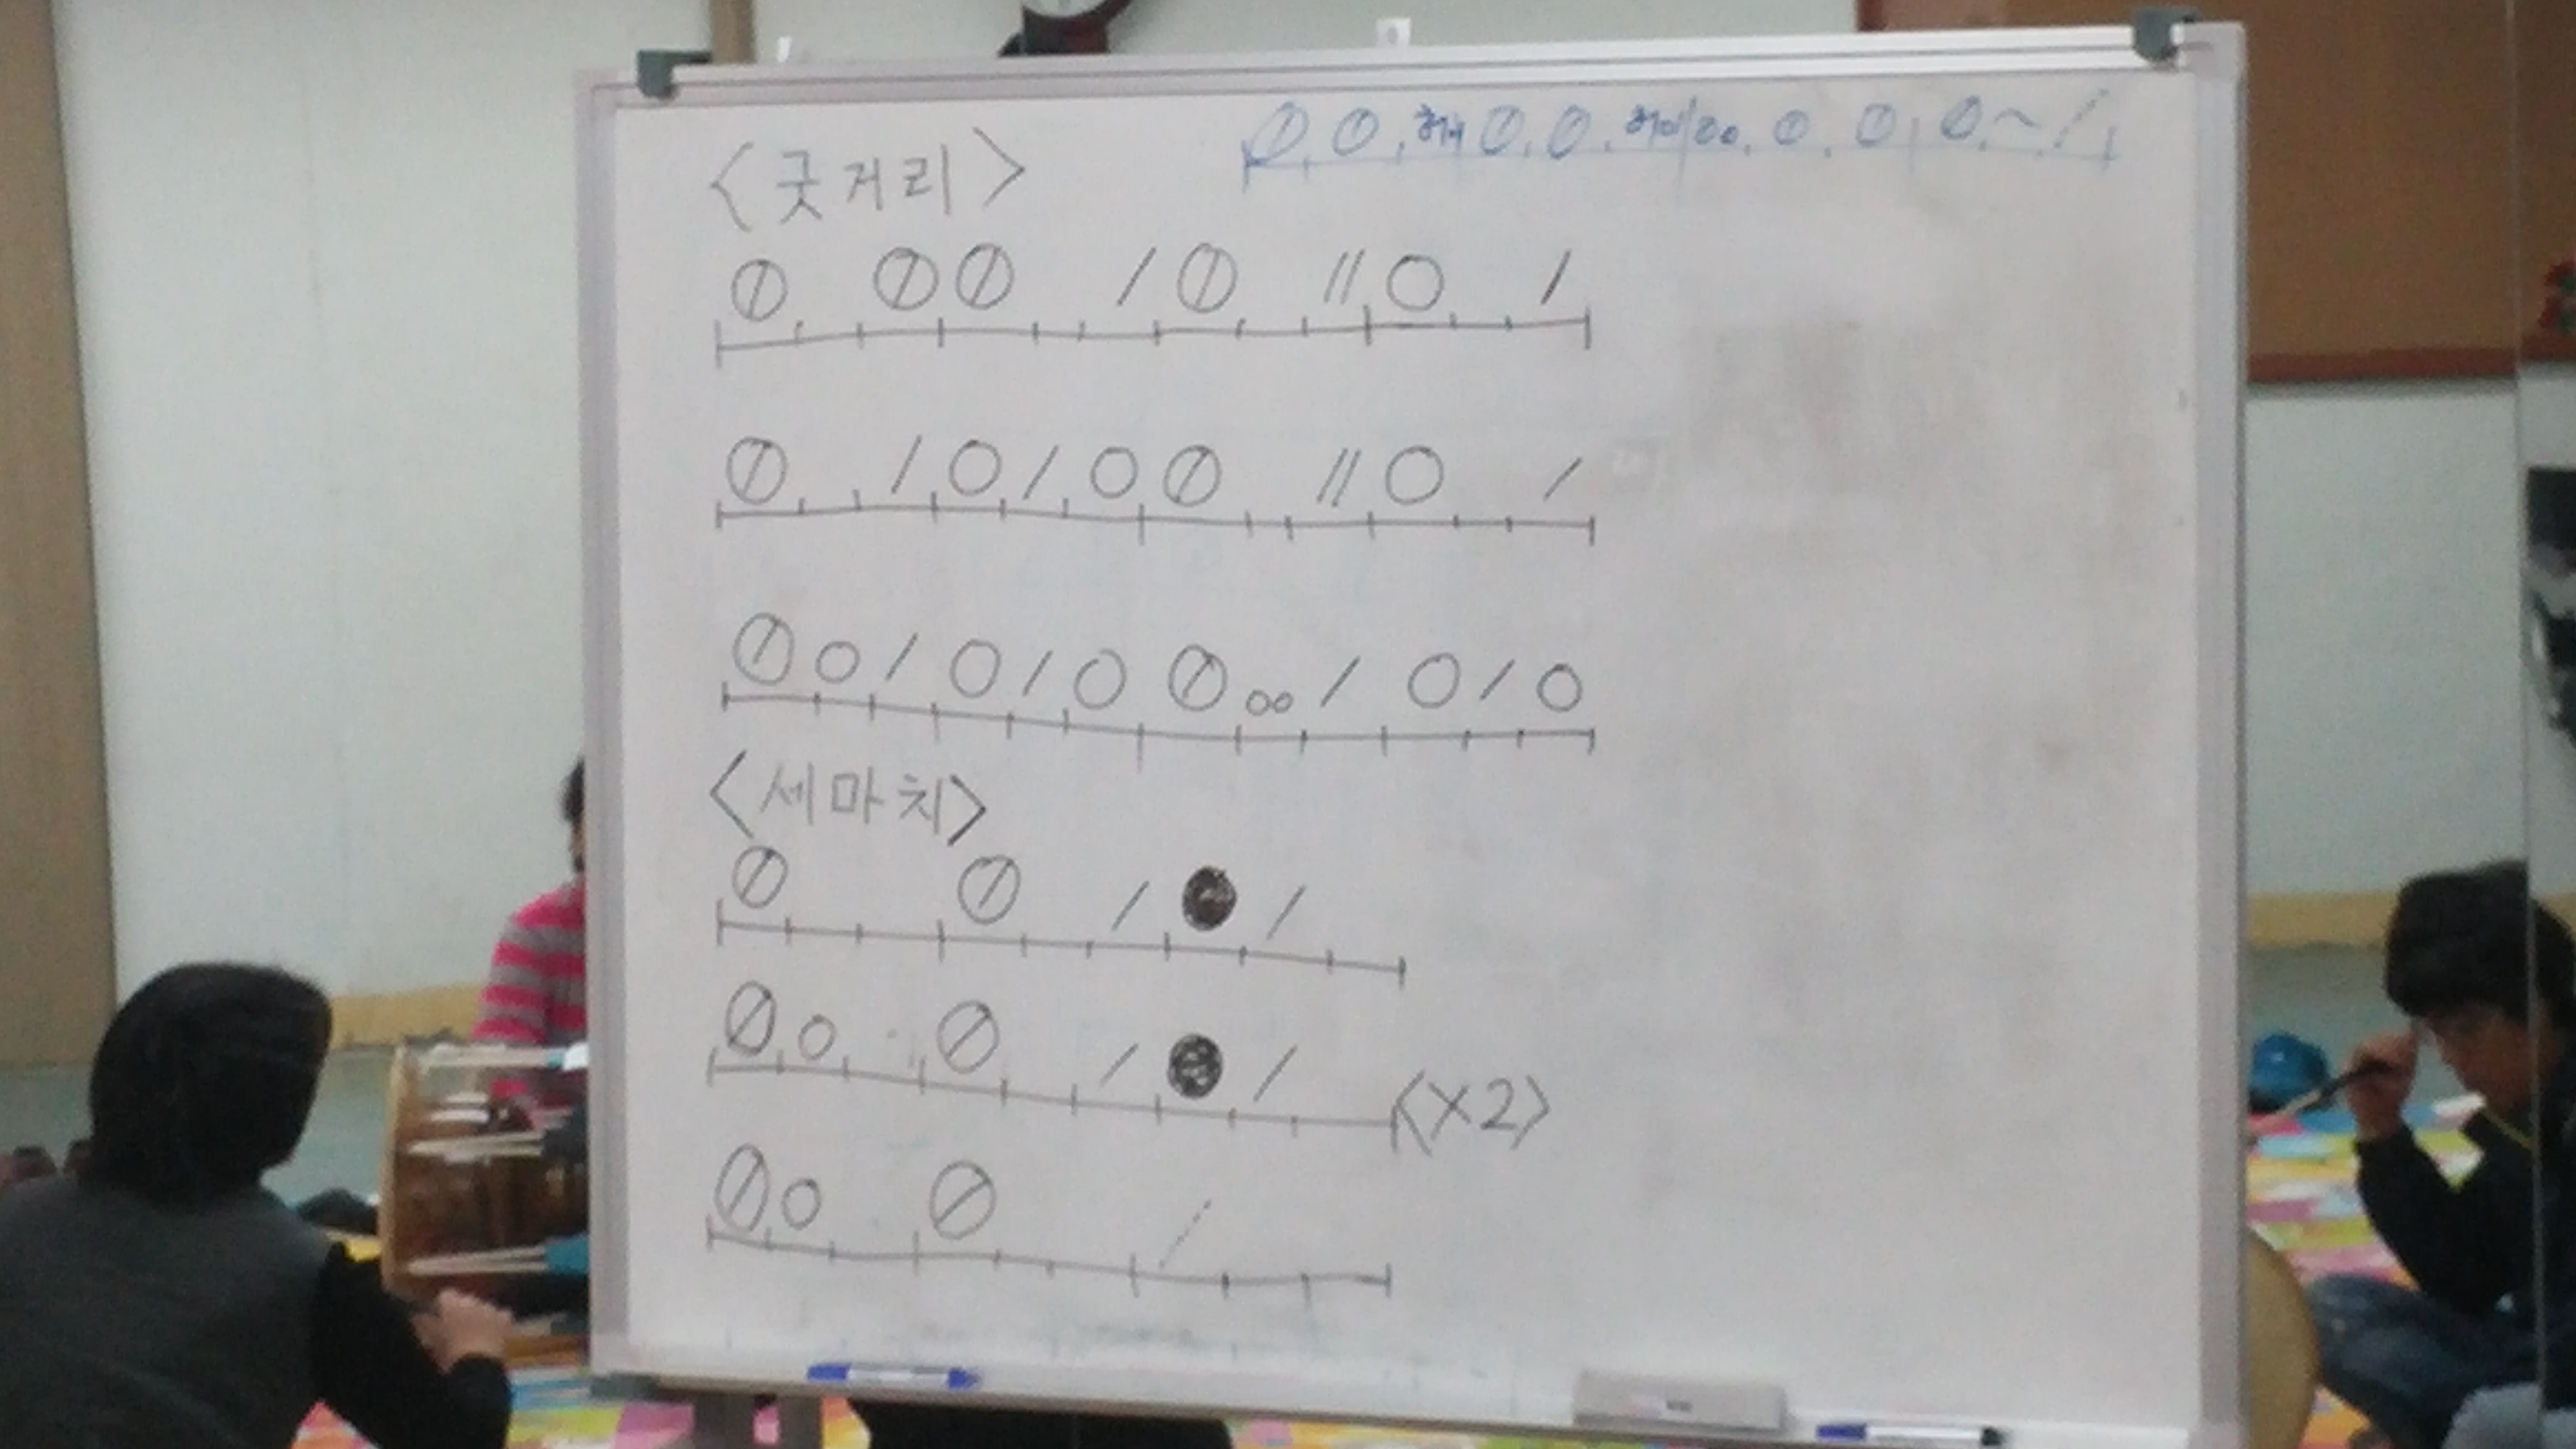 <굿거리>
⦶ ⦶ ⦶ / ⦶ // ○ /
⦶ / ○ / ○ ⦶ // ○ /
⦶ ○ / ○ / ○ ⦶ ○○ / ○ / ○
<세마치>
⦶ ⦶ / ● /
⦶ ○ ⦶ / ● / <X2>
⦶ ○ ⦶ /